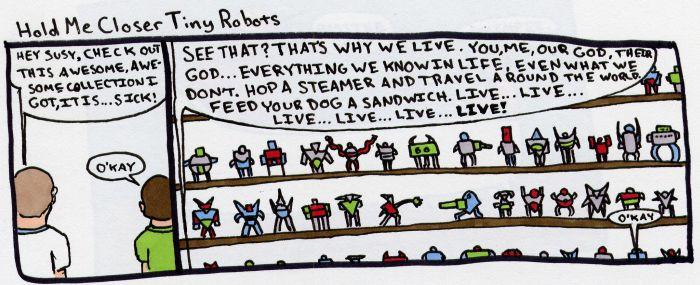 Hold Me Closer Tiny Robots
HEY SUSY, CHECK OUT
THIS AWESOME, AWE-
SOME COLLECTION I
GOT, IT IS... SICK!
O'KAY
SEE THAT? THAT'S WHY WE LIVE. YOU, ME, OUR GOD, THEIR
GOD... EVERYTHING WE KNOW IN LIFE, EVEN WHAT WE
DON'T. HOP A STEAMER AND TRAVEL AROUND THE WORLD.
FEED YOUR DOG A SANDWICH. LIVE... LIVE...
LIVE... LIVE... LIVE... LIVE!
O'KAY